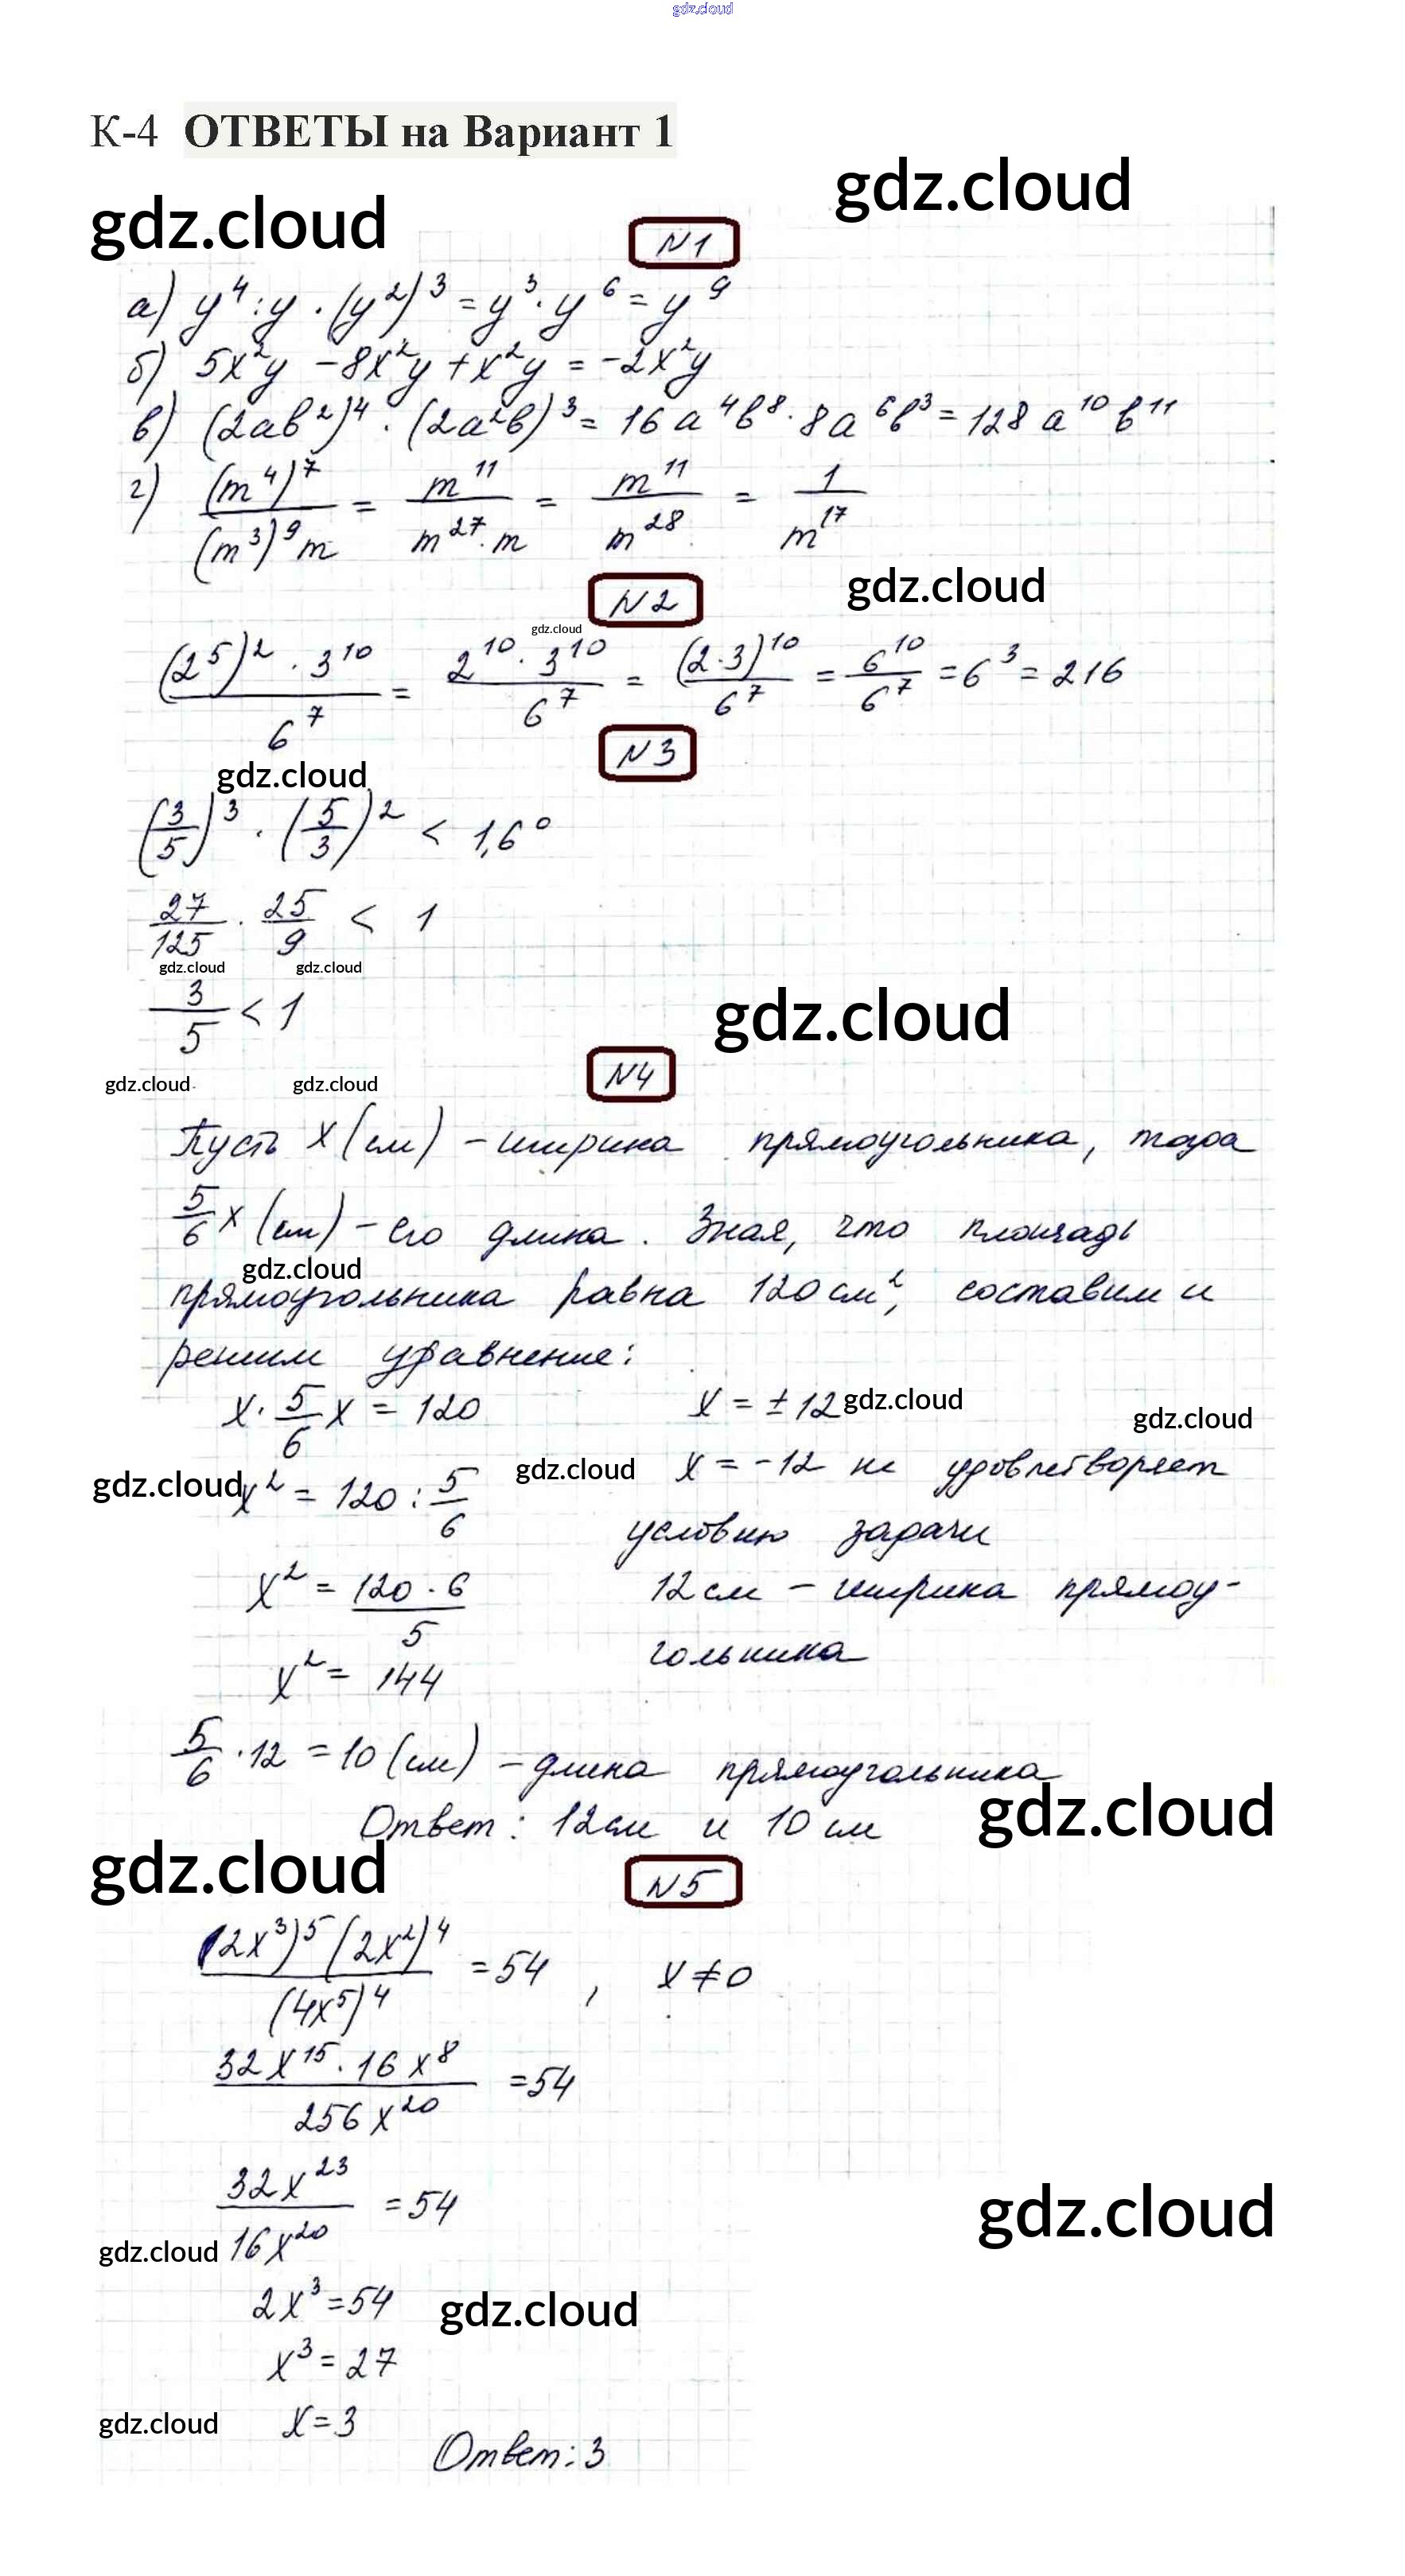 gdz.cloud
К-4 ОТВЕТЫ на Вариант 1
gdz.cloud
gdz.cloud
N1
а) y⁴ : y · (y²)³ = y³ · y⁶ = y⁹
б) 5x²y − 8x²y + x²y = −2x²y
в) (2ab²)⁴ · (2a²b)³ = 16a⁴b⁸ · 8a⁶b³ = 128a¹⁰b¹¹
г) (m⁴)⁷/((m³)⁹m) = m¹¹/(m²⁷·m) = m¹¹/m²⁸ = 1/m¹⁷
gdz.cloud
N2
gdz.cloud
(2⁵)² · 3¹⁰/6⁷ = 2¹⁰ · 3¹⁰/6⁷ = (2·3)¹⁰/6⁷ = 6¹⁰/6⁷ = 6³ = 216
N3
gdz.cloud
(3/5)³ · (5/3)² < 1,6⁰
27/125 · 25/9 < 1
gdz.cloud gdz.cloud
3/5 < 1
gdz.cloud
N4
gdz.cloud gdz.cloud
Пусть x (см) – ширина прямоугольника, тогда
5/6 x (см) – его длина. Зная, что площадь
gdz.cloud
прямоугольника равна 120 см², составим и
решим уравнение:
x · 5/6 x = 120
x² = 120 : 5/6
x² = 120 · 6/5
x² = 144
x = ± 12
gdz.cloud
gdz.cloud
gdz.cloud
gdz.cloud
x = −12 не удовлетворяет
условию задачи
12 см – ширина прямоу-
гольника
5/6 · 12 = 10 (см) – длина прямоугольника
Ответ: 12 см и 10 см
gdz.cloud
gdz.cloud
N5
(2x³)⁵(2x²)⁴/(4x⁵)⁴ = 54, x ≠ 0
32x¹⁵ · 16x⁸/256x²⁰ = 54
32x²³/16x²⁰ = 54
gdz.cloud
gdz.cloud
2x³ = 54
gdz.cloud
x³ = 27
x = 3
gdz.cloud
Ответ: 3